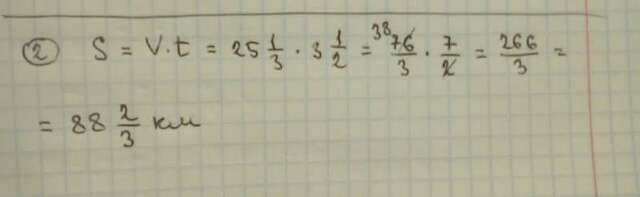 ② S = V · t = 25 1/3 · 3 1/2 = 38 76/3 · 7/2 = 266/3 =
= 88 2/3 км